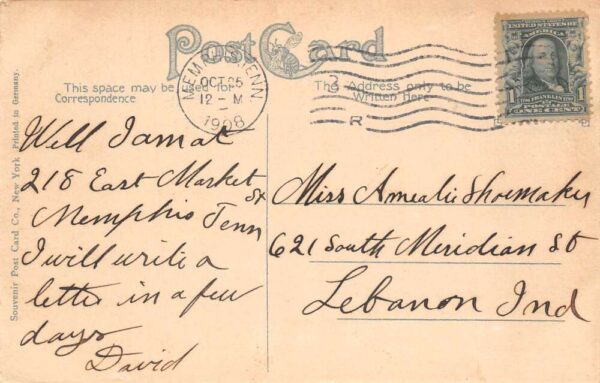 Post Card
This space may be used for
Correspondence
The Address only to be
Written Here
MEMPHIS, TENN
OCT 25
12 - M
1908
R
AMERICA
FRANKLIN
1 1
ONE CENT
Well I am at
218 East Market St
Memphis Tenn
I will write a
letter in a few
days
David
Miss Amealie Shoemaker
621 South Meridian St
Lebanon Ind
Souvenir Post Card Co., New York Printed in Germany.